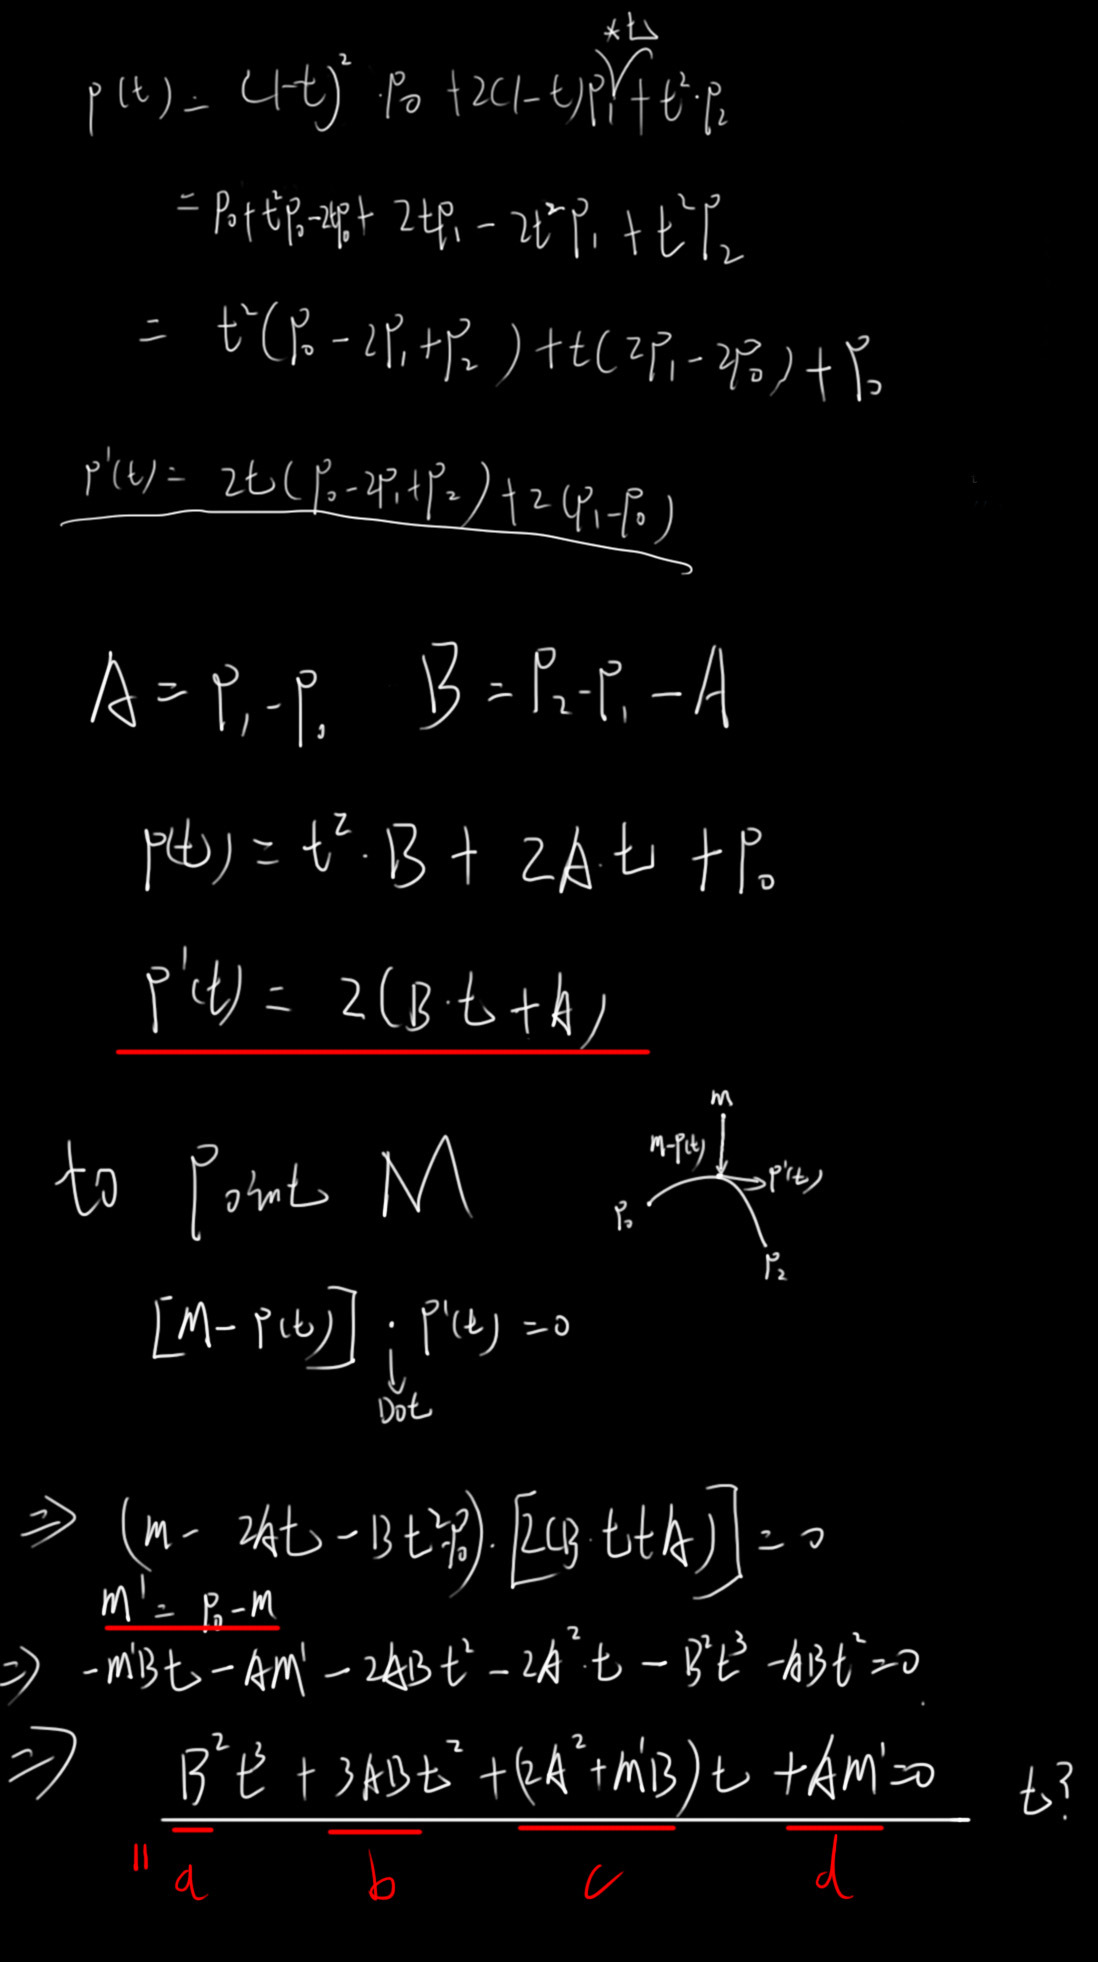 *t
p(t) = (1-t)² · P₀ + 2(1-t)P₁ + t² · P₂
= P₀ + t²P₀ - 2tP₀ + 2tP₁ - 2t²P₁ + t²P₂
= t²(P₀ - 2P₁ + P₂) + t(2P₁ - 2P₀) + P₀
P'(t) = 2t(P₀ - 2P₁ + P₂) + 2(P₁ - P₀)
A = P₁ - P₀ B = P₂ - P₁ - A
P(t) = t² · B + 2A · t + P₀
P'(t) = 2(B · t + A)
to Point M
m
m-P(t)
P'(t)
P₀
P₂
[M - P(t)] · P'(t) = 0
Dot
⇒ (m - 2At - Bt² - P₀) · [2(B · t + A)] = 0
m' = P₀ - m
⇒ -m'Bt - Am' - 2ABt² - 2A² · t - B²t³ - ABt² = 0
⇒ B²t³ + 3ABt² + (2A² + m'B)t + Am' = 0 t?
" a b c d